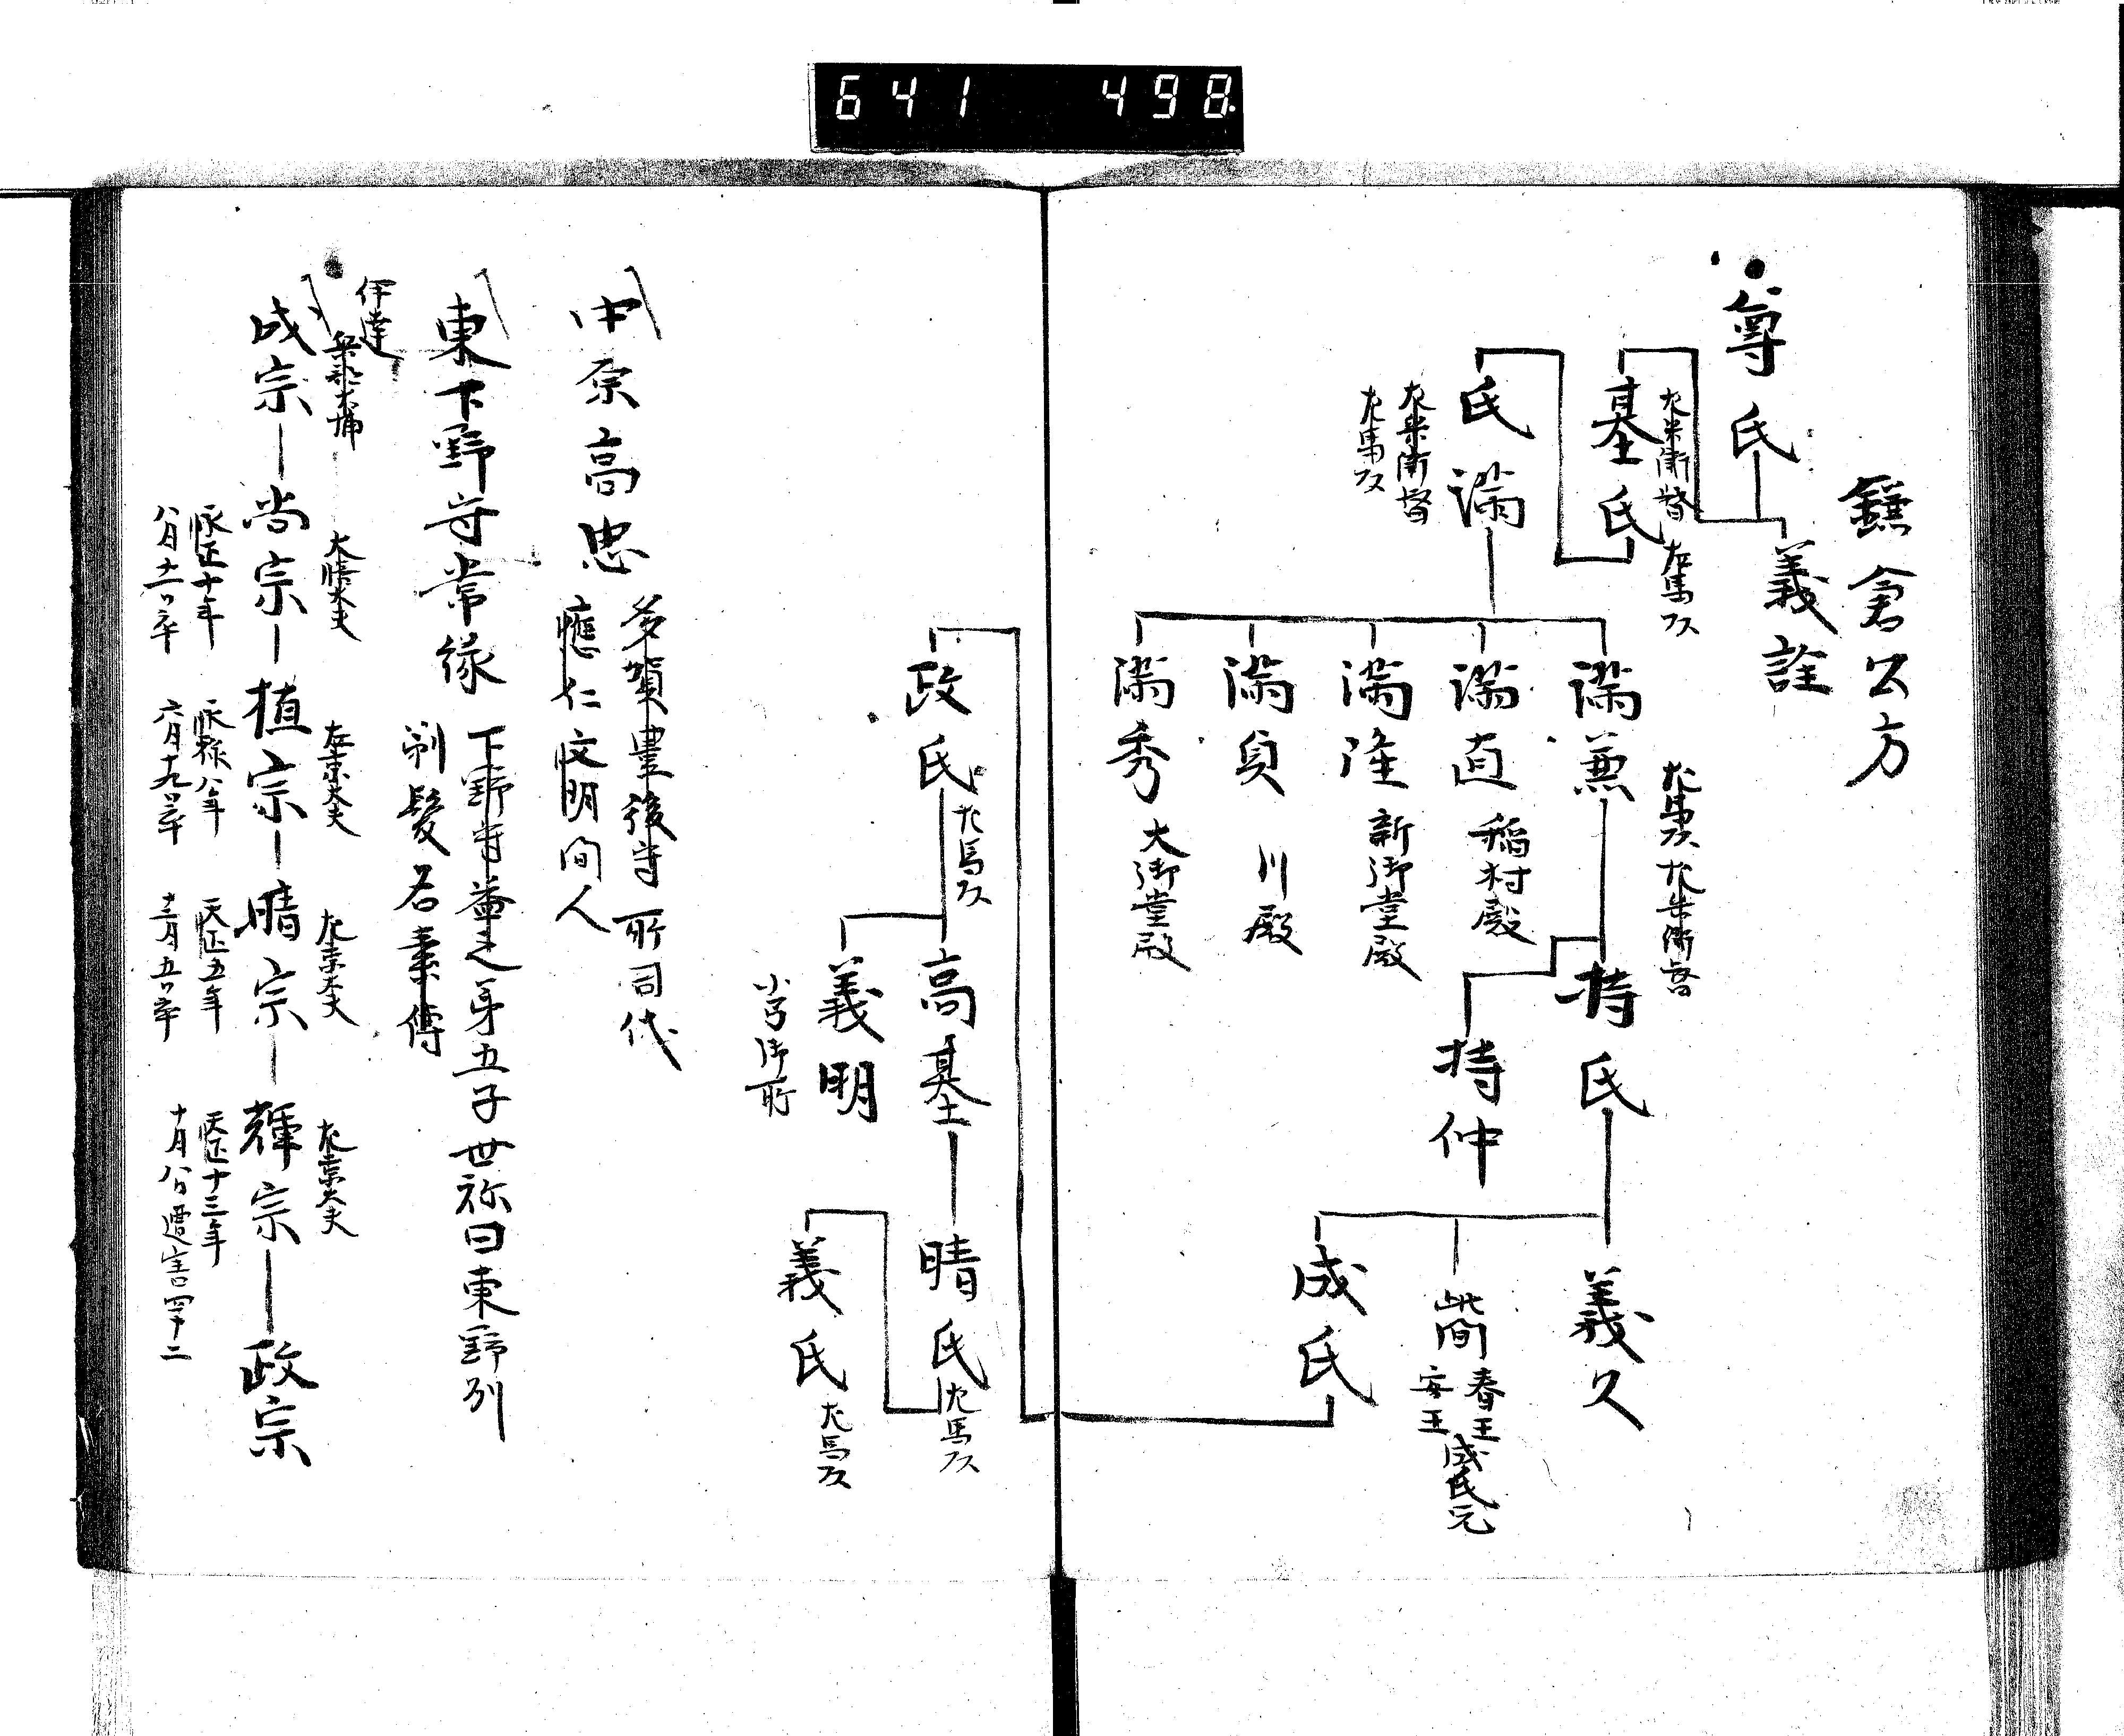 641 498
鎌倉公方
尊氏
義詮
基氏
左兵衛督 左馬頭
氏満
左兵衛督
左馬頭
満兼
左馬頭 左兵衛督
満直 稲村殿
満隆 新御堂殿
満貞 川殿
満秀 大御堂殿
持氏
持仲
義久
此間 春王 安王 成氏兄
成氏
政氏 左馬頭
高基
義明
小弓御所
晴氏 左馬頭
義氏 左馬頭
中原高忠 多賀豊後守 所司代
應仁文明間人
東下野守常縁 下野守益之身五子世称曰東野列
剃髪名素傳
伊達
兵部大輔
成宗 尚宗 植宗 晴宗 輝宗 政宗
大膳大夫 左京大夫 左京大夫 左京大夫
永正十年 永禄八年 天正五年 天正十三年
六月十九日卒 十二月五日卒 十月八日遭害四十二